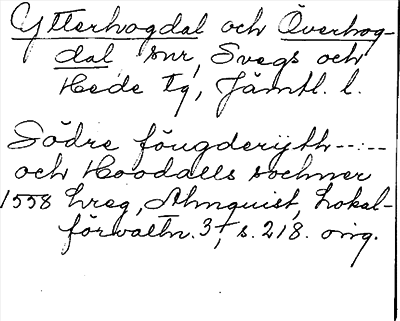 Ytterhogdal och Överhog-
dal snr, Svegs och
Hede tg, Jämtl. l.
Södre föugderijth --:--
och Hoodalls sochner
1558 hreg, Almquist, Lokal-
förvaltn. 3, s. 218. orig.